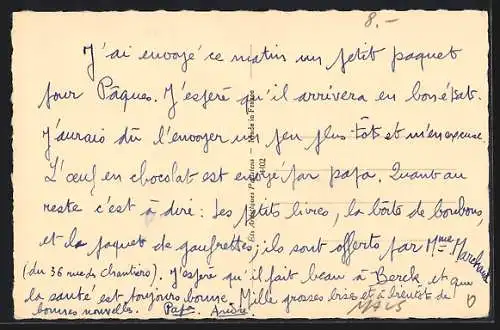 8.-
J'ai envoyé ce matin un petit paquet
pour Pâques. J'espère qu'il arrivera en bon état.
J'aurais dû l'envoyer un peu plus tôt et m'en excuse.
L'œuf en chocolat est envoyé par papa. Quant au
reste c'est à dire : les petits livres, la boîte de bonbons,
et la paquet de gaufrettes; ils sont offerts par Mme
(du 36 rue des chantiers). J'espère qu'il fait beau à Berck et que
la santé est toujours bonne. Mille grosses bises et à bientôt de
bonnes nouvelles. Papa André.
Made in France